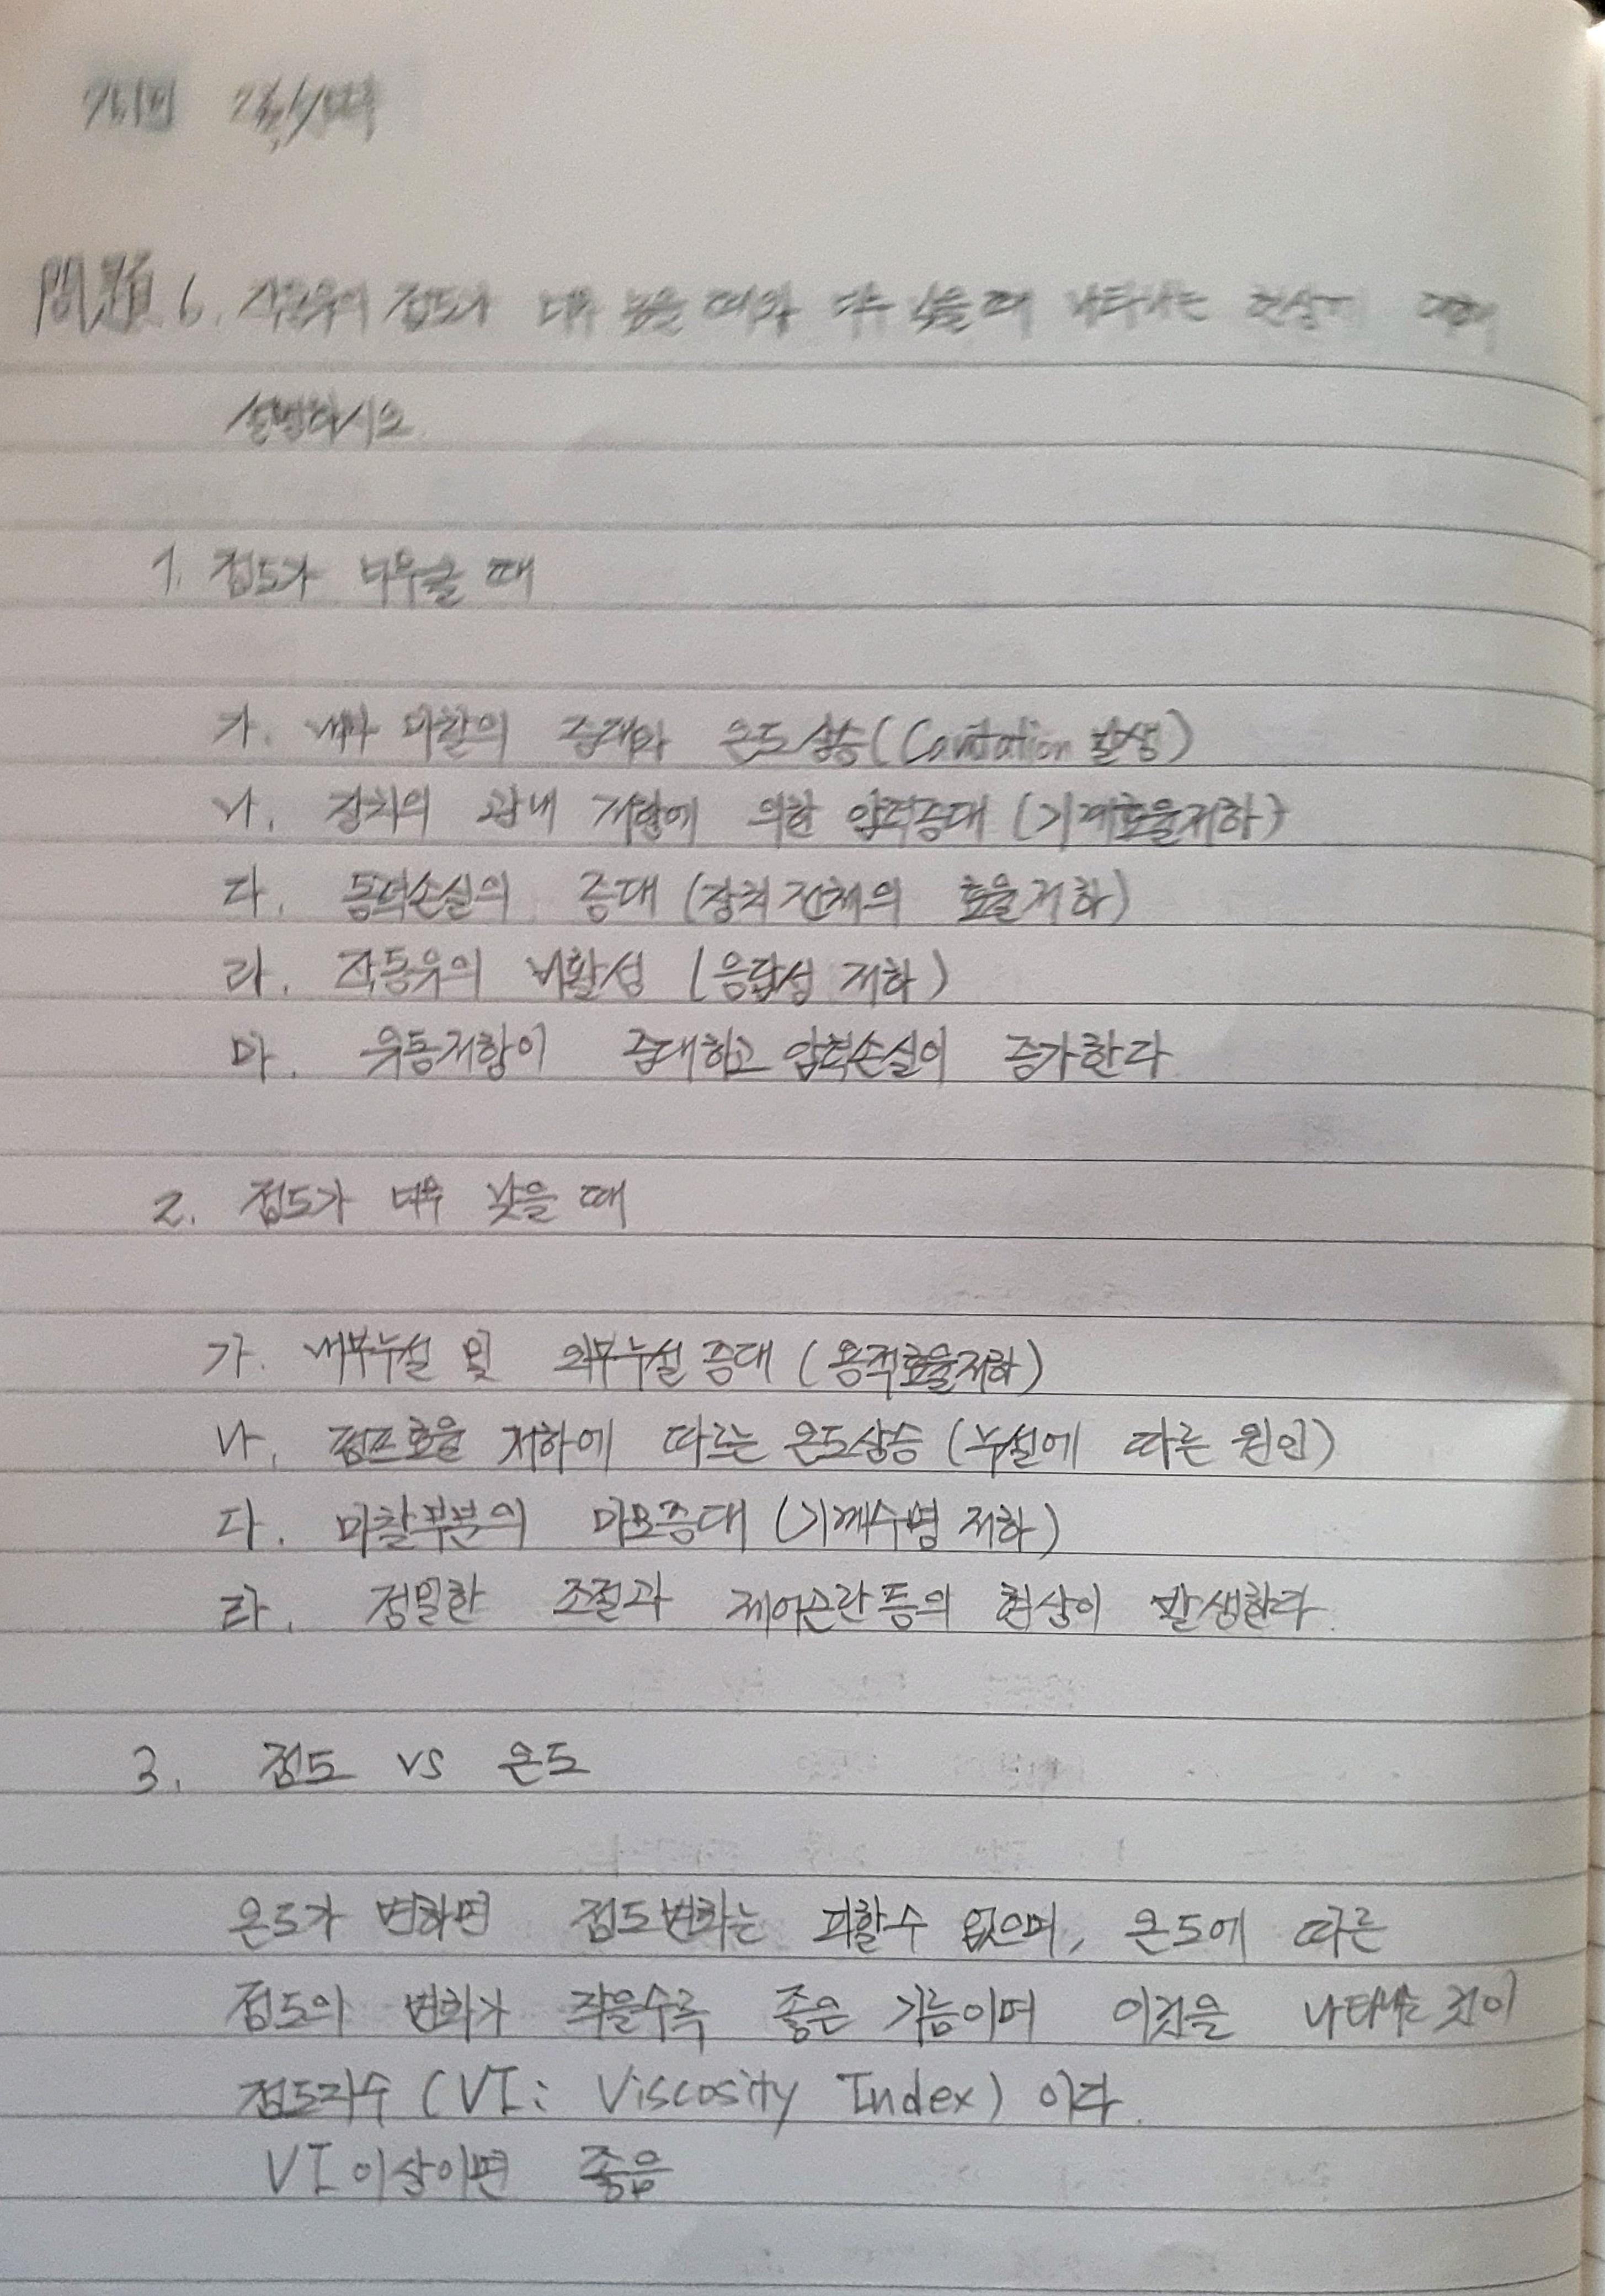 問題 6. 작동유의 점도가 너무 높을 때와 너무 낮을 때 나타나는 현상에 대해
설명하시오
1. 점도가 너무높을 때
가. 내부 마찰의 증대와 온도상승(Cavitation 발생)
나. 장치의 관내 저항에 의한 압력증대 (기계효율저하)
다. 동력손실의 증대 (장치 전체의 효율저하)
라. 작동유의 비활성 (응답성 저하)
마. 유동저항이 증대하고 압력손실이 증가한다
2. 점도가 너무 낮을 때
가. 내부누설 및 외부누설 증대 (용적효율저하)
나. 펌프효율 저하에 따르는 온도상승 (누설에 따른 원인)
다. 마찰부분의 마모증대 (기계수명 저하)
라. 정밀한 조절과 제어곤란 등의 현상이 발생한다.
3. 점도 VS 온도
온도가 변하면 점도변화는 피할수 없으며, 온도에 따른
점도의 변화가 작을수록 좋은 기름이며 이것을 나타내는 것이
점도지수 (VI: Viscosity Index) 이다.
VI 이상이면 좋음